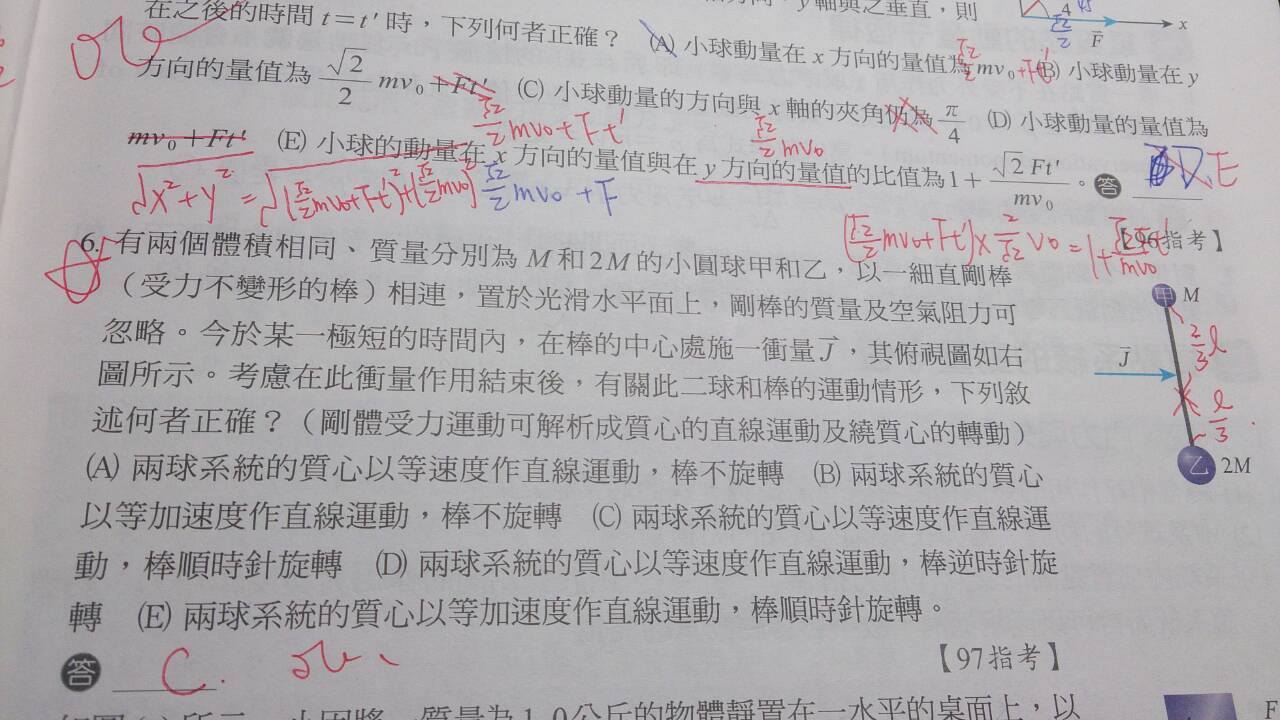 在之後的時間 t＝t′ 時，下列何者正確？ (A) 小球動量在 x 方向的量值為 mv₀ (B) 小球動量在 y
方向的量值為 √2/2 mv₀＋Ft′ (C) 小球動量的方向與 x 軸的夾角仍為 π/4 (D) 小球動量的量值為
√2/2 mv₀＋Ft′
√2/2 mv₀
mv₀＋Ft′ (E) 小球的動量在 x 方向的量值與在 y 方向的量值的比值為 1＋√2 Ft′/mv₀。答 D、E
√x²+y² = √(√2/2 mv₀+Ft′)²+(√2/2 mv₀)²
√2/2 mv₀ + F
【96指考】
6. 有兩個體積相同、質量分別為 M 和 2M 的小圓球甲和乙，以一細直剛棒
（受力不變形的棒）相連，置於光滑水平面上，剛棒的質量及空氣阻力可
忽略。今於某一極短的時間內，在棒的中心處施一衝量 J，其俯視圖如右
圖所示。考慮在此衝量作用結束後，有關此二球和棒的運動情形，下列敘
述何者正確？（剛體受力運動可解析成質心的直線運動及繞質心的轉動）
(A) 兩球系統的質心以等速度作直線運動，棒不旋轉 (B) 兩球系統的質心
以等加速度作直線運動，棒不旋轉 (C) 兩球系統的質心以等速度作直線運
動，棒順時針旋轉 (D) 兩球系統的質心以等速度作直線運動，棒逆時針旋
轉 (E) 兩球系統的質心以等加速度作直線運動，棒順時針旋轉。
答 C. 【97指考】
F x
甲 M
2/3 l
J
l/3
乙 2M